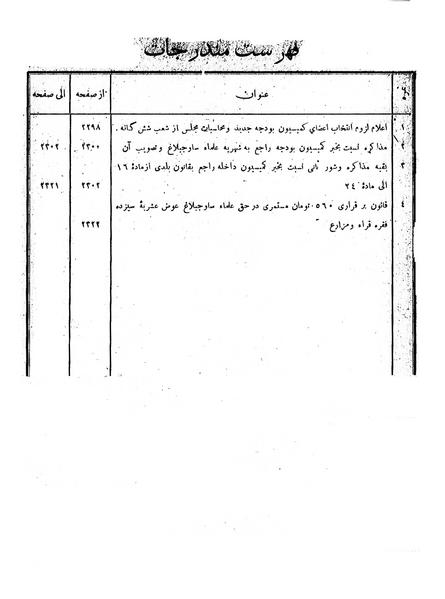 فهرست مندرجات
نمره	عنوان	از صفحه	الی صفحه
۱	اعلام لزوم انتخاب اعضای کمیسیون بودجه جدید ومحاسبات مجلس از شعب شش گانه .	۲۲۹۸
۲	مذاکره نسبت بخبر کمیسیون بودجه راجع به شهریه علماء ساوجبلاغ وتصویب آن	۲۳۰۰	۲۳۰۲
۳	بقیه مذاکره وشور ثانی نسبت بخبر کمیسیون داخله راجع بقانون بلدی ازمادهٔ ۱۶
الی مادهٔ ۲۴	۲۳۰۲	۲۳۲۱
۴	قانون بر قراری ۵۶۰ تومان مستمری در حق علماء ساوجبلاغ عوض عشریهٔ سیزده
فقره قراء ومزارع	۲۳۲۲